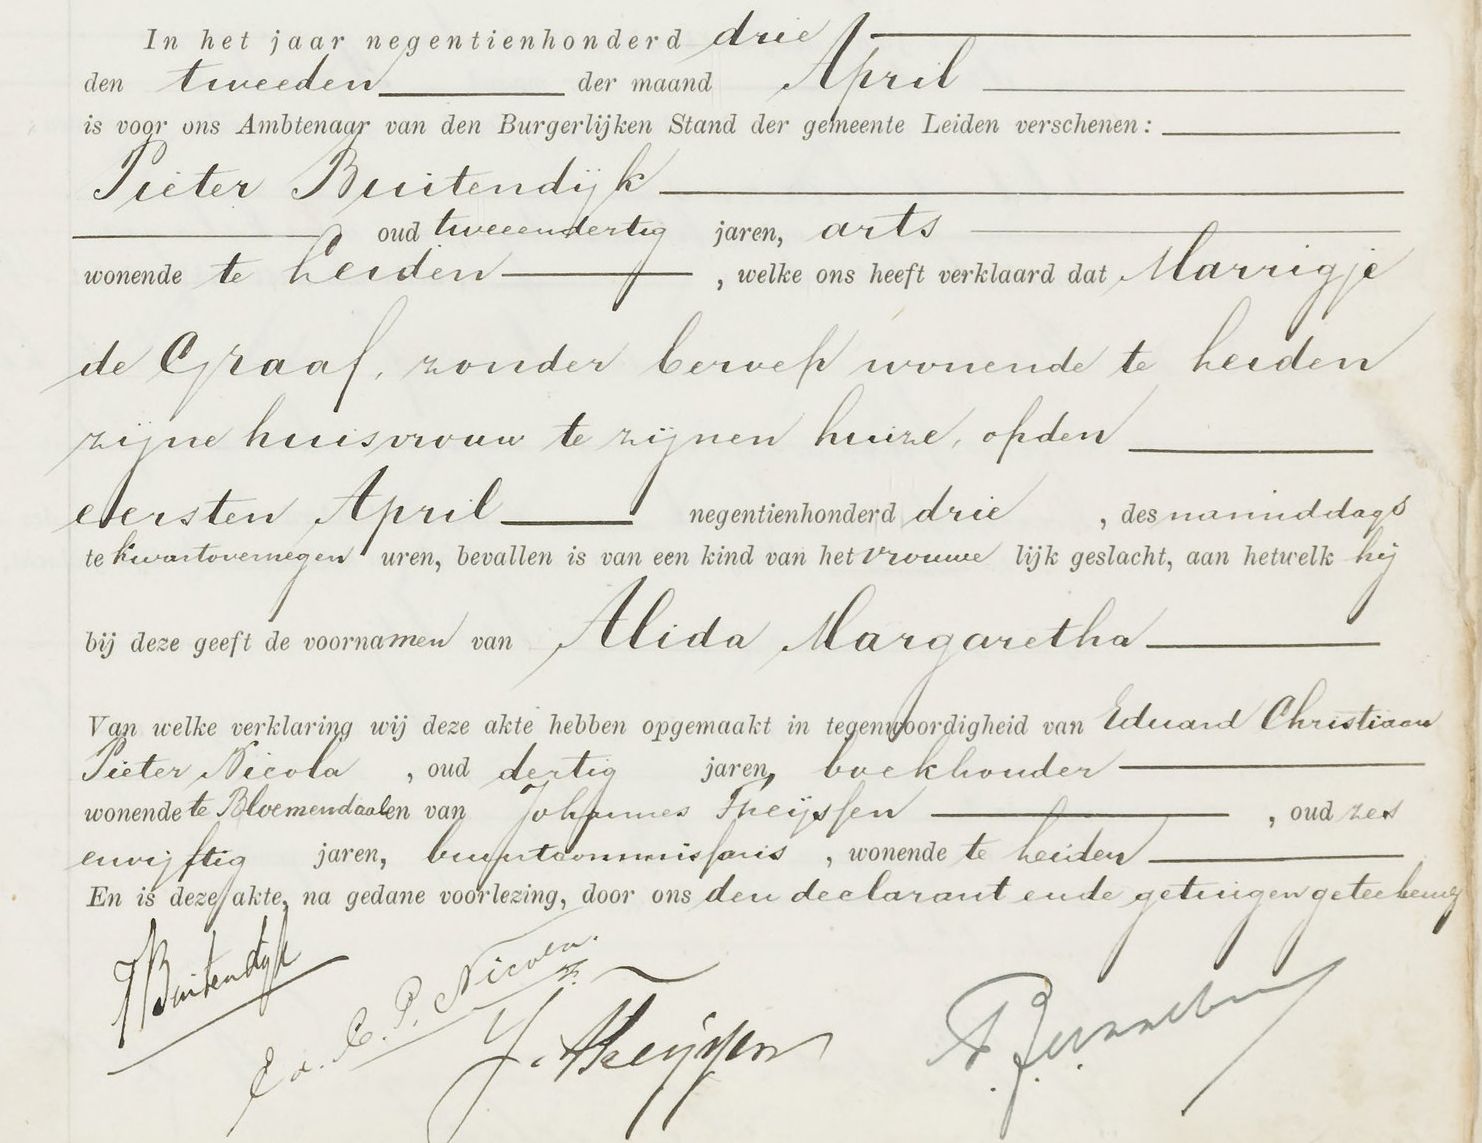 In het jaar negentienhonderd drie
den tweeden der maand April
is voor ons Ambtenaar van den Burgerlijken Stand der gemeente Leiden verschenen:
Pieter Buitendijk
oud tweeendertig jaren, arts
wonende te Leiden, welke ons heeft verklaard dat Marrigje
de Graaf, zonder beroep wonende te Leiden
zijne huisvrouw te zijnen huize, opden
eersten April negentienhonderd drie, des namiddags
te kwartovernegen uren, bevallen is van een kind van het vrouwe lijk geslacht, aan hetwelk hij
bij deze geeft de voornamen van Alida Margaretha
Van welke verklaring wij deze akte hebben opgemaakt in tegenwoordigheid van Eduard Christiaan
Pieter Nicola, oud dertig jaren, boekhouder
wonende te Bloemendaal en van Johannes Theijssen, oud zes
envijftig jaren, buurtcommissaris, wonende te Leiden
En is deze akte, na gedane voorlezing, door ons den declarant ende getuigen geteekend
PBuitendijk
Ed. C. P. Nicola.
J. Theijssen